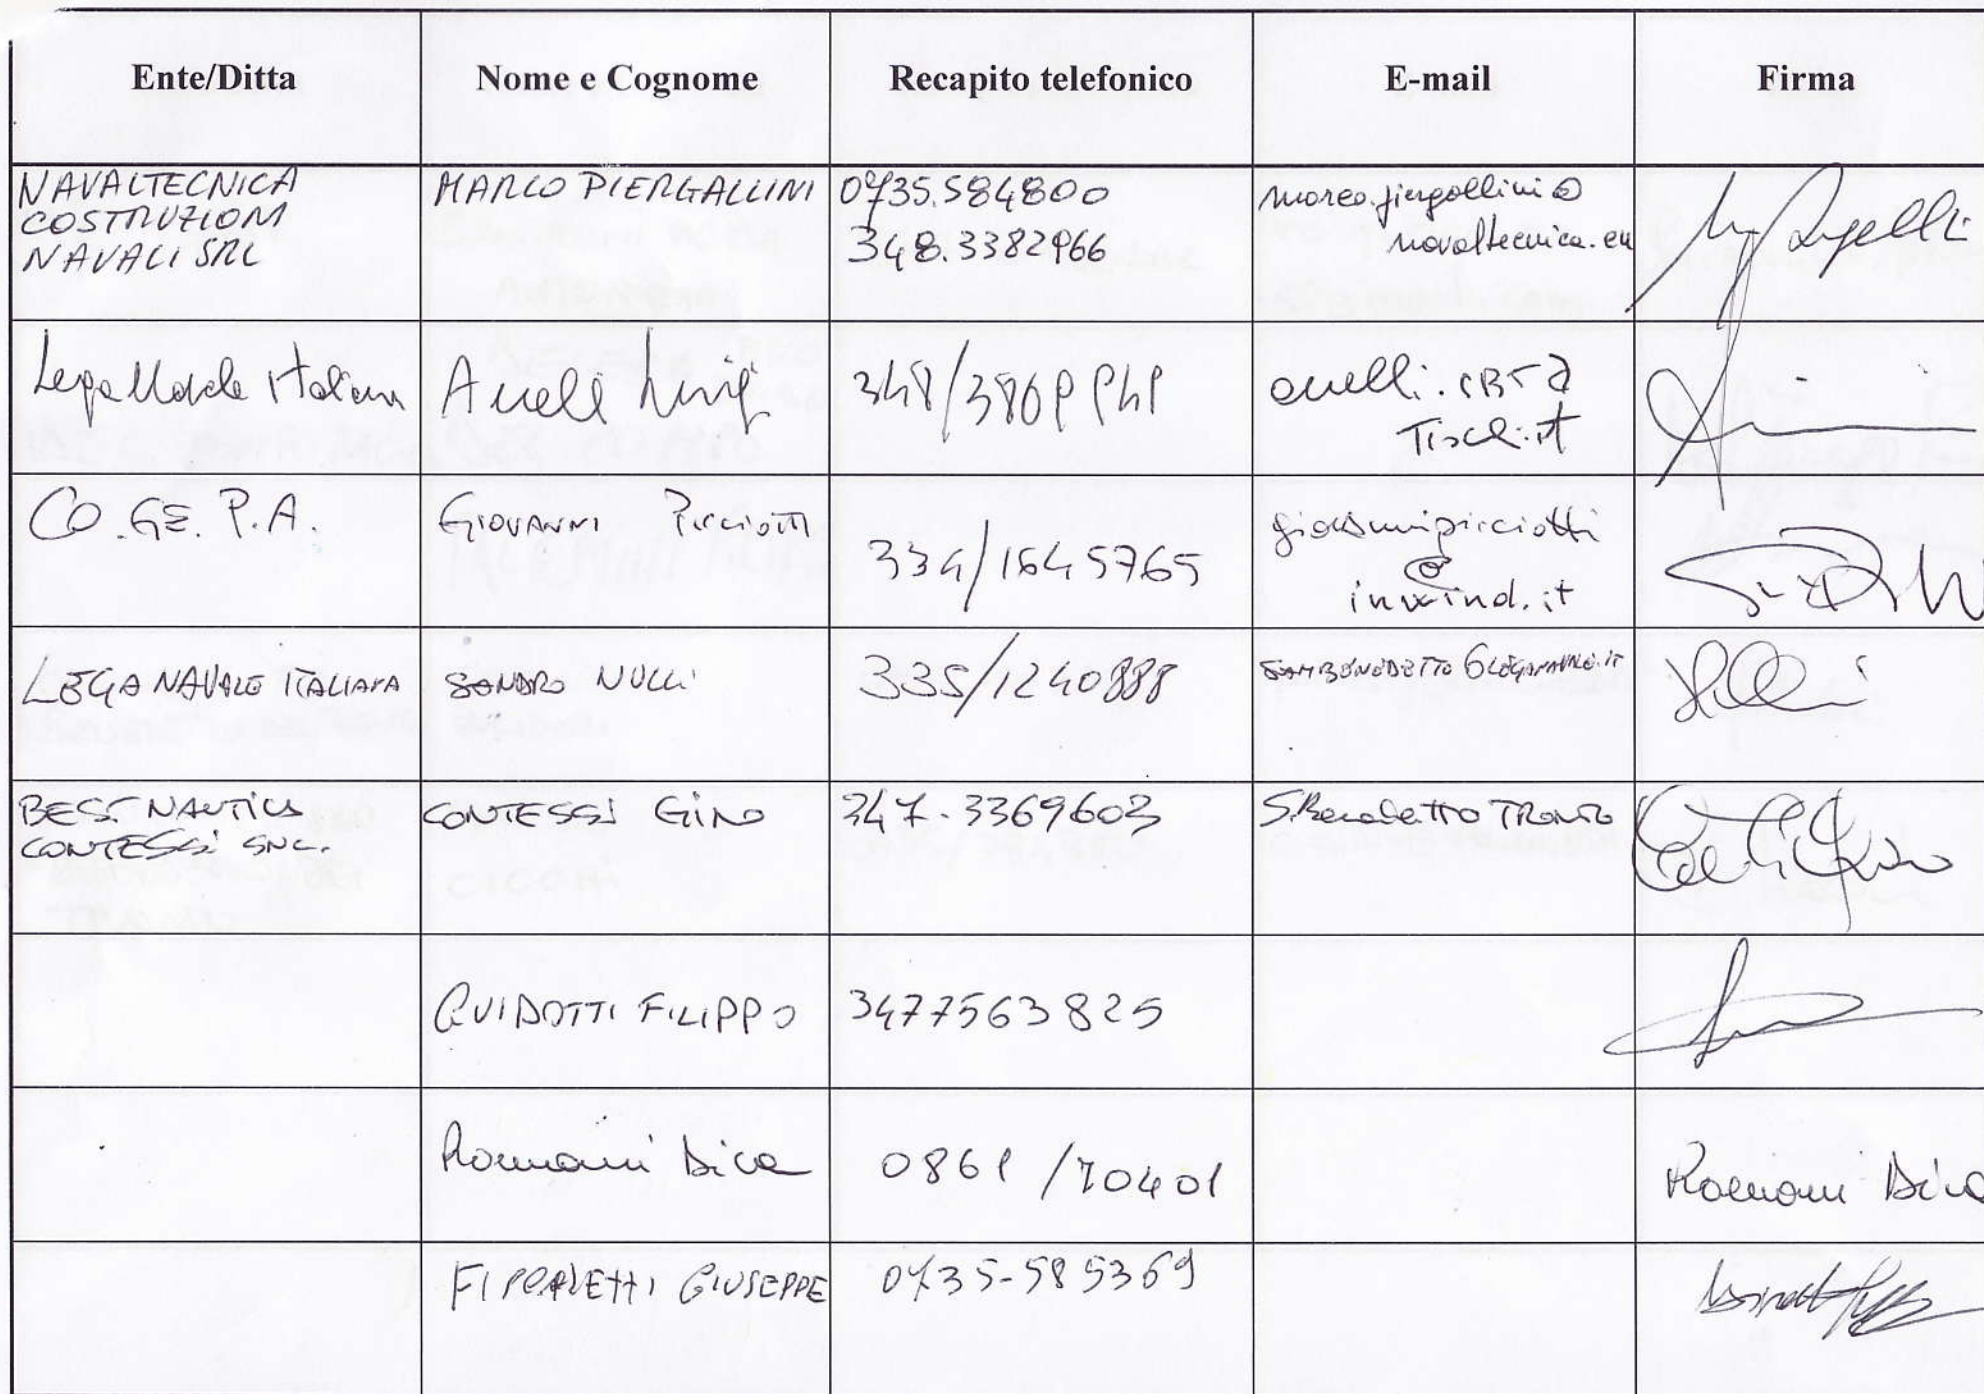 Ente/Ditta Nome e Cognome Recapito telefonico E-mail Firma
NAVALTECNICA
COSTRUZIONI
NAVALI SRL
MARCO PIERGALLINI
0735.584800
348.3382966
marco.piergallini@
navaltecnica.eu
Lega Navale Italiana
Luigi
348/
Tiscali.it
CO.GE.P.A.
GIOVANNI Picciotti
334/1645765
giovannipicciotti
@
inwind.it
LEGA NAVALE ITALIANA
SANDRO NULLI
335/1240888
SAMBENEDETTO@LEGANAVALE.IT
BEST NAUTICA
CONTESSI SNC.
CONTESSI GINO
347-3369603
S.Benedetto TRONTO
GUIDOTTI FILIPPO
3477563825
Romani Dica
0861/70401
Romani Dica
GIUSEPPE
0735-585369